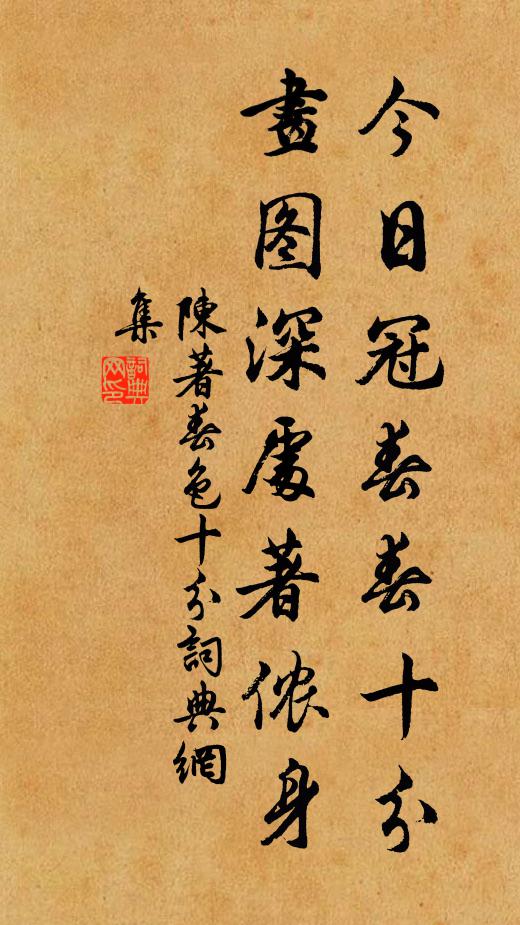 今日冠春春十分
畫图深處著侬身
陳著春色十分詞典網
集
詞典网印